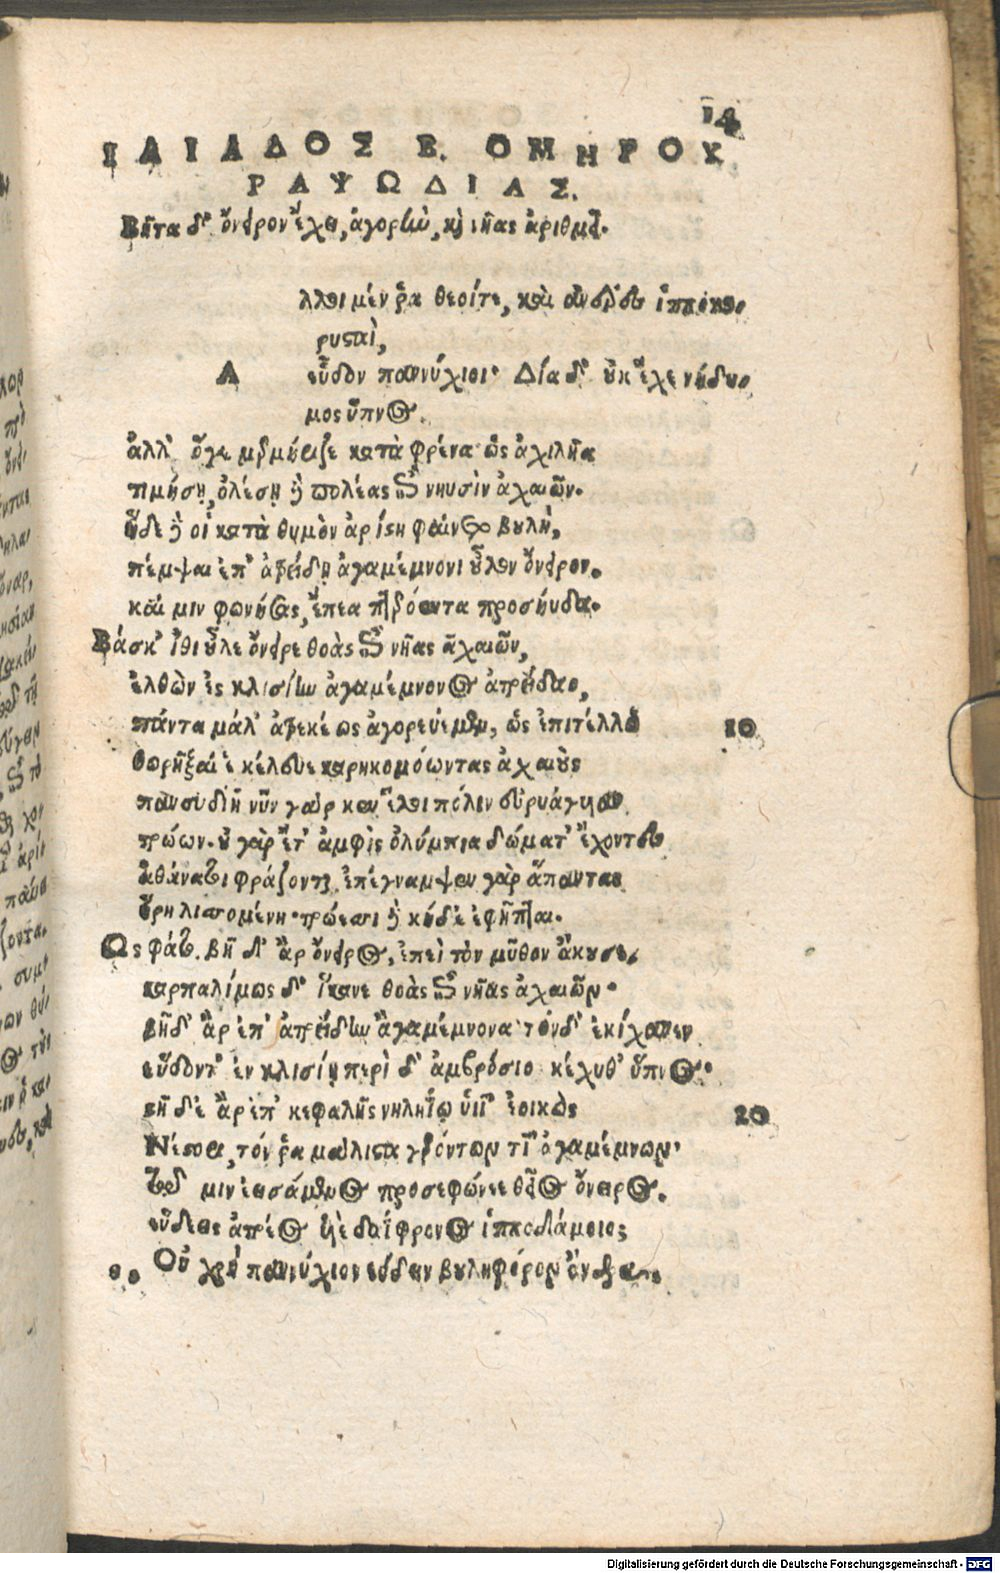 14
ΙΛΙΑΔΟΣ Β. ΟΜΗΡΟΥ
ΡΑΨΩΔΙΑΣ.
Βῆτα δ' ὄνειρον ἔχει, ἀγορὴν, καὶ νῆας ἀριθμεῖ.
λλοι μέν ῥα θεοίτε, καὶ ἀνέρες ἱπποκο-
ρυσαὶ,
Α εὗδον παννύχιοι· Δία δ' οὐκ ἔχε νήδυ-
μος ὕπνος.
ἀλλ' ὅγε μερμήριζε κατὰ φρένα ὡς ἀχιλῆα
τιμήσῃ, ὀλέσῃ δὲ πολέας ἐπὶ νηυσὶν ἀχαιῶν.
ἥδε δὲ οἱ κατὰ θυμὸν ἀρίστη φαίνετο βουλὴ,
πέμψαι ἐπ' ἀτρείδῃ ἀγαμέμνονι οὖλον ὄνειρον.
καί μιν φωνήσας, ἔπεα πτερόεντα προσηύδα.
Βάσκ' ἴθι οὖλε ὄνειρε θοὰς ἐπὶ νῆας ἀχαιῶν,
ἐλθὼν ἐς κλισίην ἀγαμέμνονος ἀτρείδαο,
πάντα μάλ' ἀτρεκέως ἀγορευέμεν, ὡς ἐπιτέλλω 10
θωρῆξαί ἑ κέλευε καρηκομόωντας ἀχαιοὺς
πανσυδίῃ νῦν γάρ κεν ἕλοι πόλιν εὐρυάγυιαν
τρώων. οὐ γὰρ ἔτ' ἀμφὶς ὀλύμπια δώματ' ἔχοντες
ἀθάνατοι φράζονται. ἐπέγναμψεν γὰρ ἅπαντας
ἥρη λισσομένη· τρώεσσι δὲ κήδε' ἐφῆπται.
Ως φάτο. βῆ δ' ἄρ ὄνειρος, ἐπεὶ τὸν μῦθον ἄκουσε,
καρπαλίμως δ' ἵκανε θοὰς ἐπὶ νῆας ἀχαιῶν.
βῆ δ' ἄρ ἐπ' ἀτρείδην ἀγαμέμνονα· τόνδ' ἐκίχανεν
εὕδοντ' ἐν κλισίῃ περὶ δ' ἀμβρόσιο κέχυθ' ὕπνος.
βῆ δ' ἄρ ἐπ' κεφαλῆς νηληίῳ ὑιῒ ἐοικὼς 20
Νέστορι, τόν ῥα μάλιστα γερόντων τῖ ἀγαμέμνων.
τῷ μιν ἐεισάμενος προσεφώνεε θεῖος ὄνειρος.
εὕδεις ἀτρέος ὑὲ δαΐφρονος ἱπποδάμοιο;
Οὐ χρὴ παννύχιον εὕδειν βουληφόρον ἄνδρα.
Digitalisierung gefördert durch die Deutsche Forschungsgemeinschaft - DFG